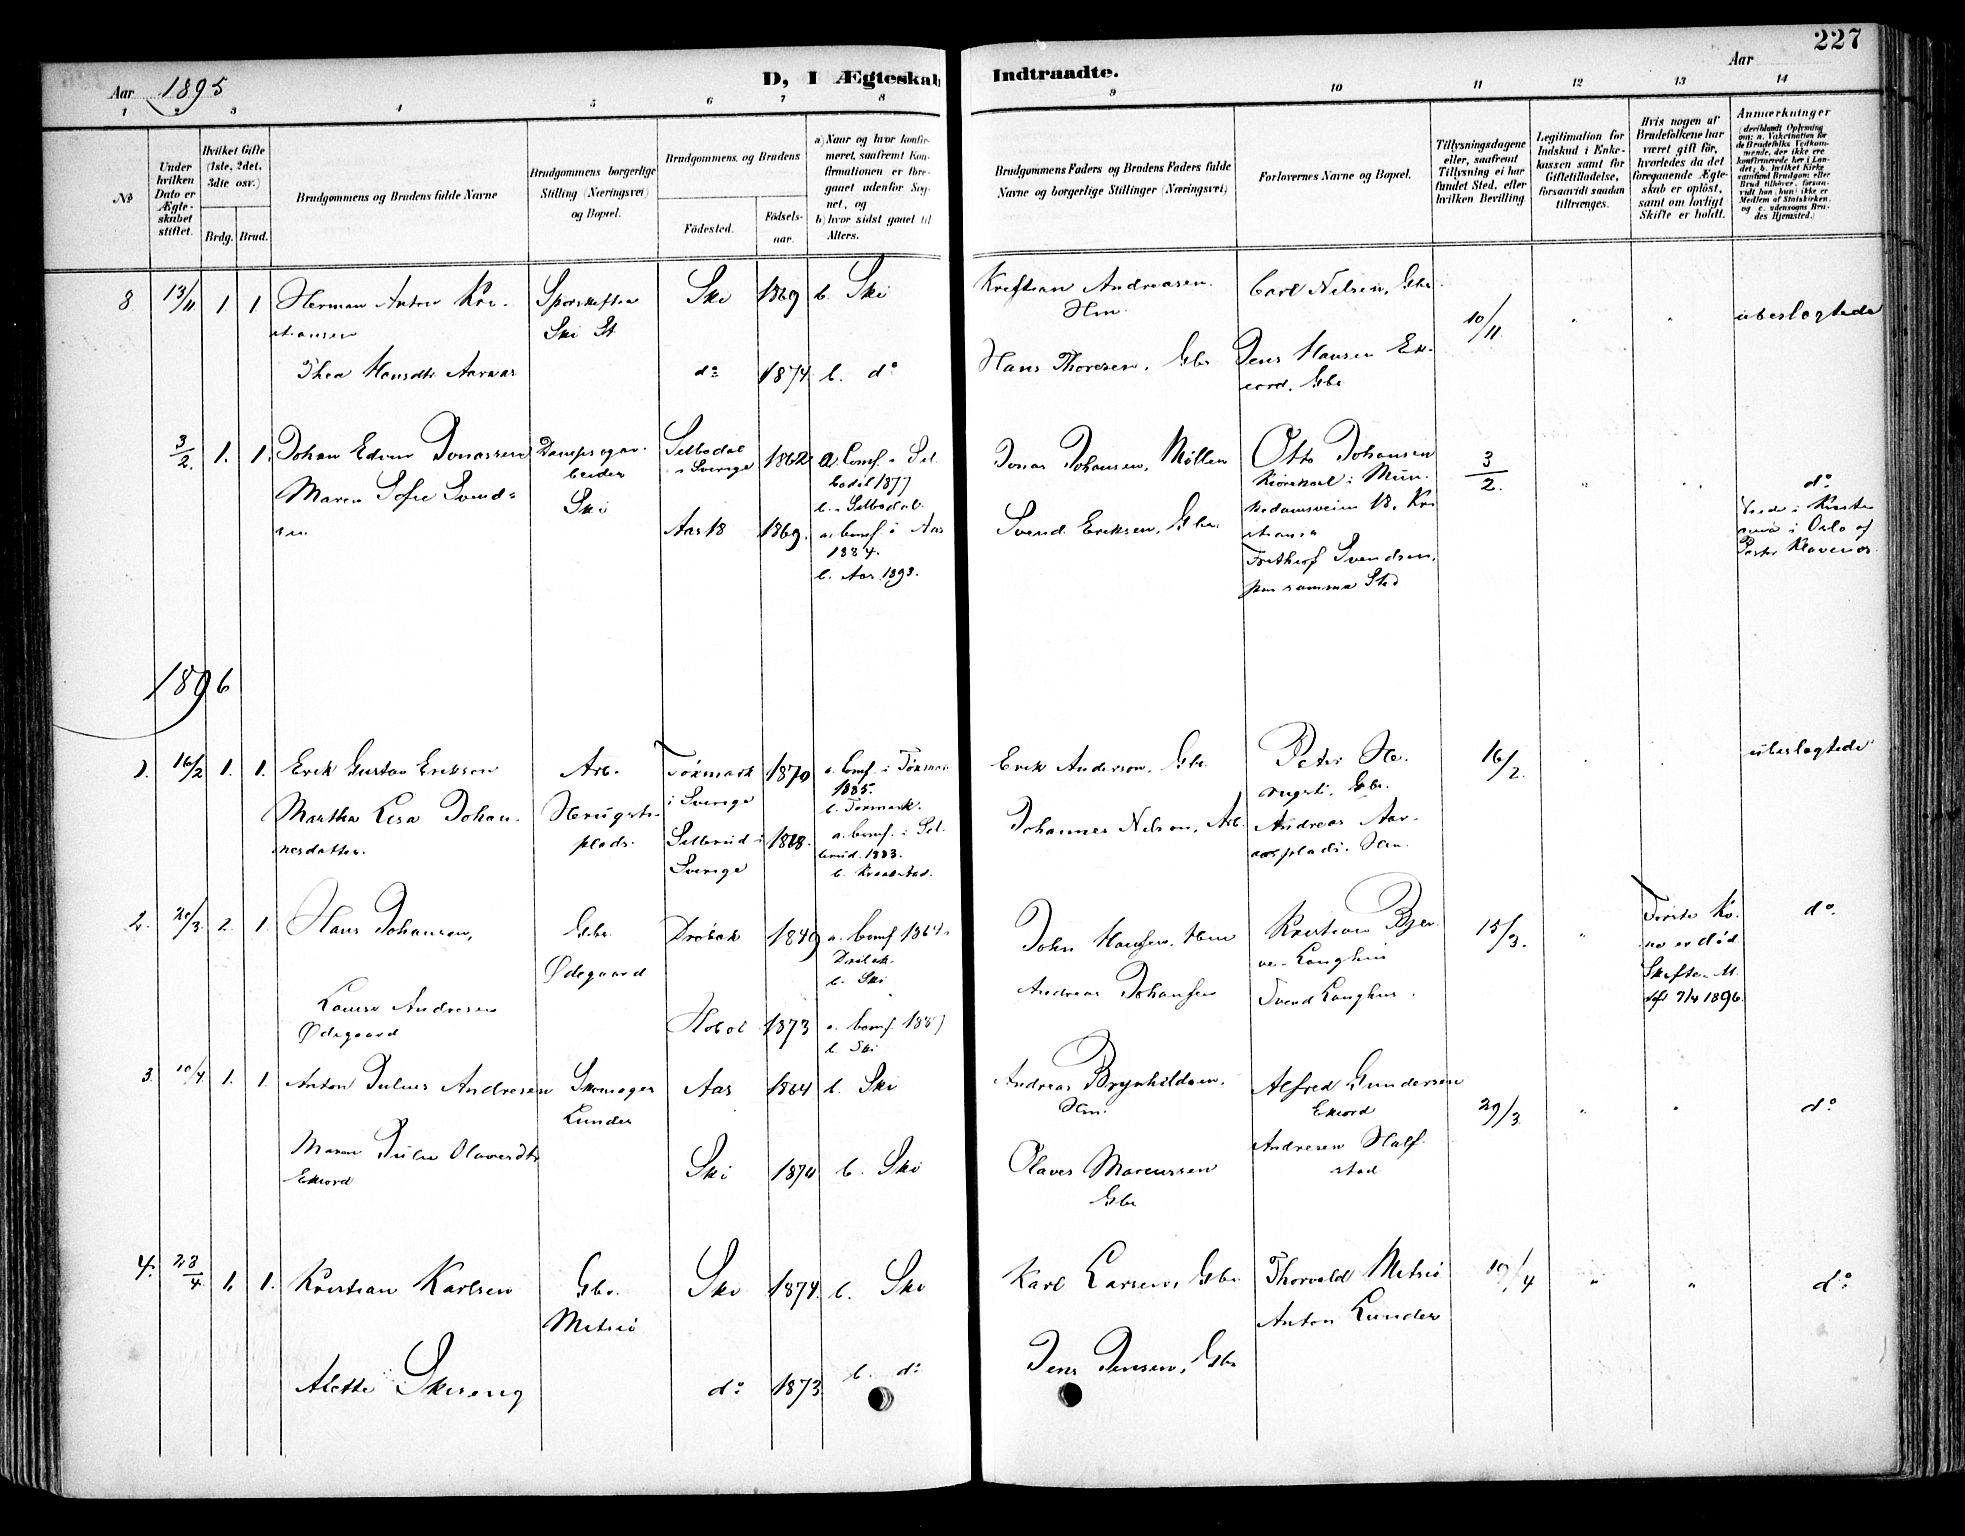 227
Aar 1895
D, I Ægteskab Indtraadte.
Aar
1 2 3 4 5 6 7 8 9 10 11 12 13 14
No
Under hvilken Dato er Ægteskabet stiftet.
Hvilket Gifte (1ste, 2det, 3die osv.)
Brdg. Brud.
Brudgommens og Brudens fulde Navne
Brudgommens borgerlige Stilling (Næringsvei) og Bopæl.
Brudgommens og Brudens
Fødested.
Fødselsaar.
a) Naar og hvor konfirmeret, saafremt Konfirmationen er foregaaet udenfor Sognet, og
b) hvor sidst gaaet til Alters.
Brudgommens Faders og Brudens Faders fulde Navne og borgerlige Stillinger (Næringsvei)
Forlovernes Navne og Bopæl.
Tillysningsdagene eller, saafremt Tillysning ei har fundet Sted, efter hvilken Bevilling.
Legitimation for Indskud i Enkekassen samt for Giftetilladelse, forsaavidt saadan tiltrænges.
Hvis nogen af Brudefolkene har været gift før, hvorledes da det foregaaende Ægteskab er opløst, samt om lovligt Skifte er holdt.
Anmærkninger
8 13/11 1. 1 Herman Anton Kristiansen
Ski St.
Ski 1869 b. Ski
Kristian Andreasen. Hm.
Carl Nilsen, Gbr.
10/11
ubeslægtede
Thea Hansdtr Aaraas
do 1874 b. do
Hans Thoresen, Gbr
Jens Hansen Ekeord, Gbr
3/2. 1. 1. Johan Edvin Jonassen
Dampsagarbeider
Ski
Silbodal i Sverige 1862
a. Conf. i Silbodal 1877
b. Silbodal.
Jonas Johansen, Møller
Otto Johansen
Munkedamsveien 18, Kristiania
3/2.
do
Maren Sofie Svendsen
Aas 1869.
a. conf. i Aas 1884.
b. Aas 1893.
Svend Eriksen, Gbr.
Frithiof Svendsen, paa samme Sted
1896
1. 16/2 1. 1. Erik Gustav Erikson
Arb.
Tøxmark i Sverige 1870
a. Conf. i Tøxmark 1885.
b. Tøxmark.
Erik Anderson, Gbr.
16/2.
ubeslægtede
Martha Lisa Johannesdatter.
Silbrud i Sverige
a. conf. i Silbrud. 1883.
b. Kraakstad.
Johannes Nilson, Arb.
Andreas Aaraasplads. Hm.
2. 20/3 2. 1. Hans Johansen,
Gbr.
Ødegaard
Drøbak 1849
a. Conf 1864. Drøbak
b. Ski
John Hansen, Hm
15/3.
Første Kone er død
do.
Andreas Johansen
Svend Langhus.
Ødegaard
Hobøl 1873
b. Ski
3. 10/4 1. 1. Anton Julius Andresen
Skomager
Lunder
Aas 1864 b. Ski
Andreas Brynhildsen. Hm.
Alfred Gundersen
Ekeord
29/3.
do
Maren Julie Olavesdtr
Ekeord
Ski 1874 b. Ski
Olaves Marcussen
Gbr
Andresen Halfstad
4. 23/4. 1. 1. Kristian Karlsen
Gbr.
Ski 1874. b. Ski
Karl Larsen, Gbr
19/4
do
Anton Lunder
Alette Skireng
do 1873. b. do
Jens Jensen, Gbr